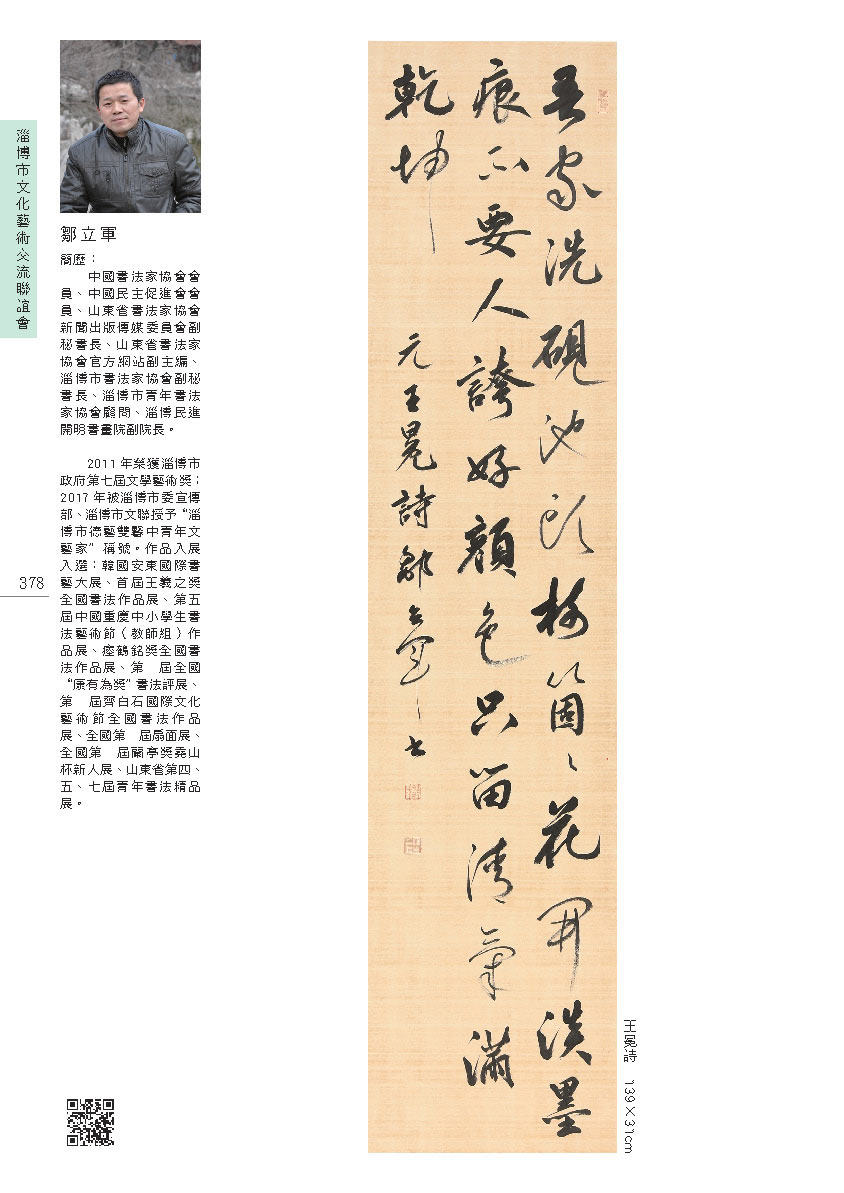 淄博市文化藝術交流聯誼會
378
鄒立軍
簡歷：
中國書法家協會會
員、中國民主促進會會
員、山東省書法家協會
新聞出版傳媒委員會副
秘書長、山東省書法家
協會官方網站副主編、
淄博市書法家協會副秘
書長、淄博市青年書法
家協會顧問、淄博民進
開明書畫院副院長。
2011 年榮獲淄博市
政府第七屆文學藝術獎；
2017 年被淄博市委宣傳
部、淄博市文聯授予“淄
博市德藝雙馨中青年文
藝家”稱號。作品入展
入選：韓國安東國際書
藝大展、首屆王羲之獎
全國書法作品展、第五
屆中國重慶中小學生書
法藝術節（教師組）作
品展、瘞鶴銘獎全國書
法作品展、第 屆全國
“康有為獎”書法評展、
第 屆齊白石國際文化
藝術節全國書法作品
展、全國第 屆扇面展、
全國第 屆蘭亭獎堯山
杯新人展、山東省第四、
五、七屆青年書法精品
展。
吾家洗硯池頭樹箇〻花開淡墨
痕不要人誇好顏色只留清氣滿
乾坤
元王冕詩鄒立軍書
王冕詩 139×31cm